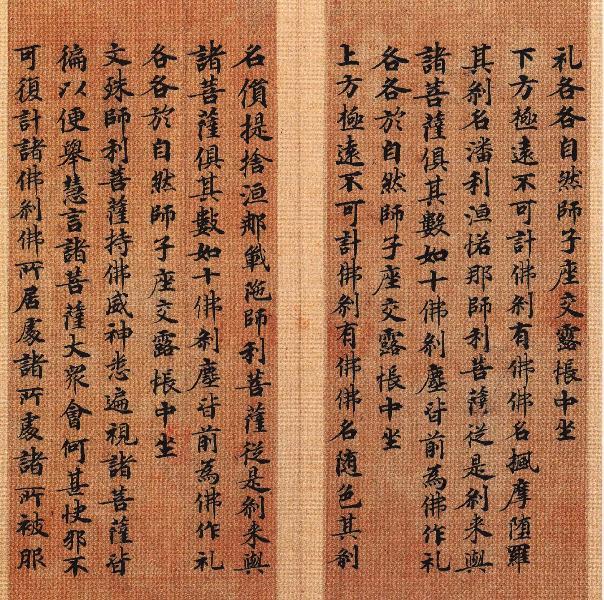 礼各各自然師子座交露帳中坐
下方極遠不可計佛剎有佛佛名楓摩堕羅
其剎名潘利洹惒那師利菩薩從是剎来與
諸菩薩俱其數如十佛剎塵皆前為佛作礼
各各於自然師子座交露帳中坐
上方極遠不可計佛剎有佛佛名随色其剎
名償提捨洹那軷陁師利菩薩從是剎来與
諸菩薩俱其數如十佛剎塵皆前為佛作礼
各各於自然師子座交露帳中坐
文殊師利菩薩持佛威神悉遍視諸菩薩皆
徧以便舉慧言諸菩薩大衆會何甚快邪不
可復計諸佛剎佛所居處諸所處諸所被服